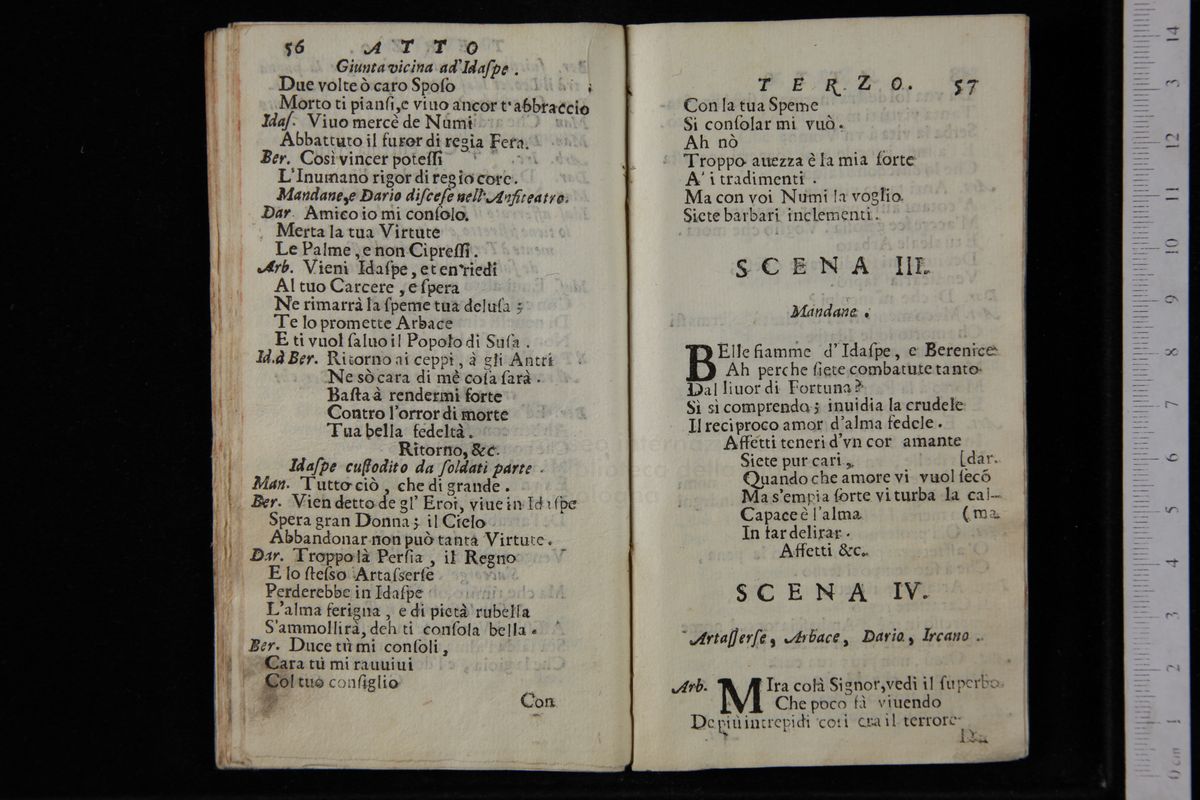 56 ATTO
Giunta vicina ad'Idaſpe.
Due volte ò caro Spoſo ;
Morto ti pianſi,e viuo ancor t'abbraccio
Idaſ. Viuo mercè de Numi
Abbattuto il furor di regia Fera.
Ber. Così vincer poteſſi
L'Inumano rigor di regio core.
Mandane,e Dario diſceſe nell'Anfiteatro.
Dar. Amico io mi conſolo.
Merta la tua Virtute
Le Palme, e non Cipreſſi.
Arb. Vieni Idaſpe, et en'riedi
Al tuo Carcere, e ſpera
Ne rimarrà la ſpeme tua deluſa;
Te lo promette Arbace
E ti vuol ſaluo il Popolo di Suſa.
Id.à Ber. Ritorno ai ceppi, à gli Antri
Ne sò cara di mè coſa ſarà.
Baſta à rendermi forte
Contro l'orror di morte
Tua bella fedeltà.
Ritorno, &c.
Idaſpe cuſtodito da ſoldati parte.
Man. Tutto ciò, che di grande.
Ber. Vien detto de gl' Eroi, viue in Idaſpe
Spera gran Donna; il Cielo
Abbandonar non può tanta Virtute.
Dar. Troppo là Perſia, il Regno
E lo ſteſso Artaſserſe
Perderebbe in Idaſpe
L'alma ferigna, e di pietà rubella
S'ammollirà, deh ti conſola bella.
Ber. Duce tù mi conſoli,
Cara tù mi rauuiui
Col tuo conſiglio
Con
TERZO. 57
Con la tua Speme
Si conſolar mi vuò.
Ah nò
Troppo auezza è la mia ſorte
A' i tradimenti.
Ma con voi Numi la voglio
Siete barbari inclementi.
SCENA III.
Mandane.
BElle fiamme d' Idaſpe, e Berenice
Ah perche ſiete combatute tanto
Dal liuor di Fortuna?
Sì sì comprendo; inuidia la crudele
Il reciproco amor d'alma fedele.
Affetti teneri d'vn cor amante
Siete pur cari, [dar.
Quando che amore vi vuol ſecò
Ma s'empia ſorte vi turba la cal-
Capace è l'alma (ma
In far delirar.
Affetti &c.
SCENA IV.
Artaſſerſe, Arbace, Dario, Ircano.
Arb. MIra colà Signor,vedi il ſuperbo
Che poco fà viuendo
De più intrepidi cori era il terrore